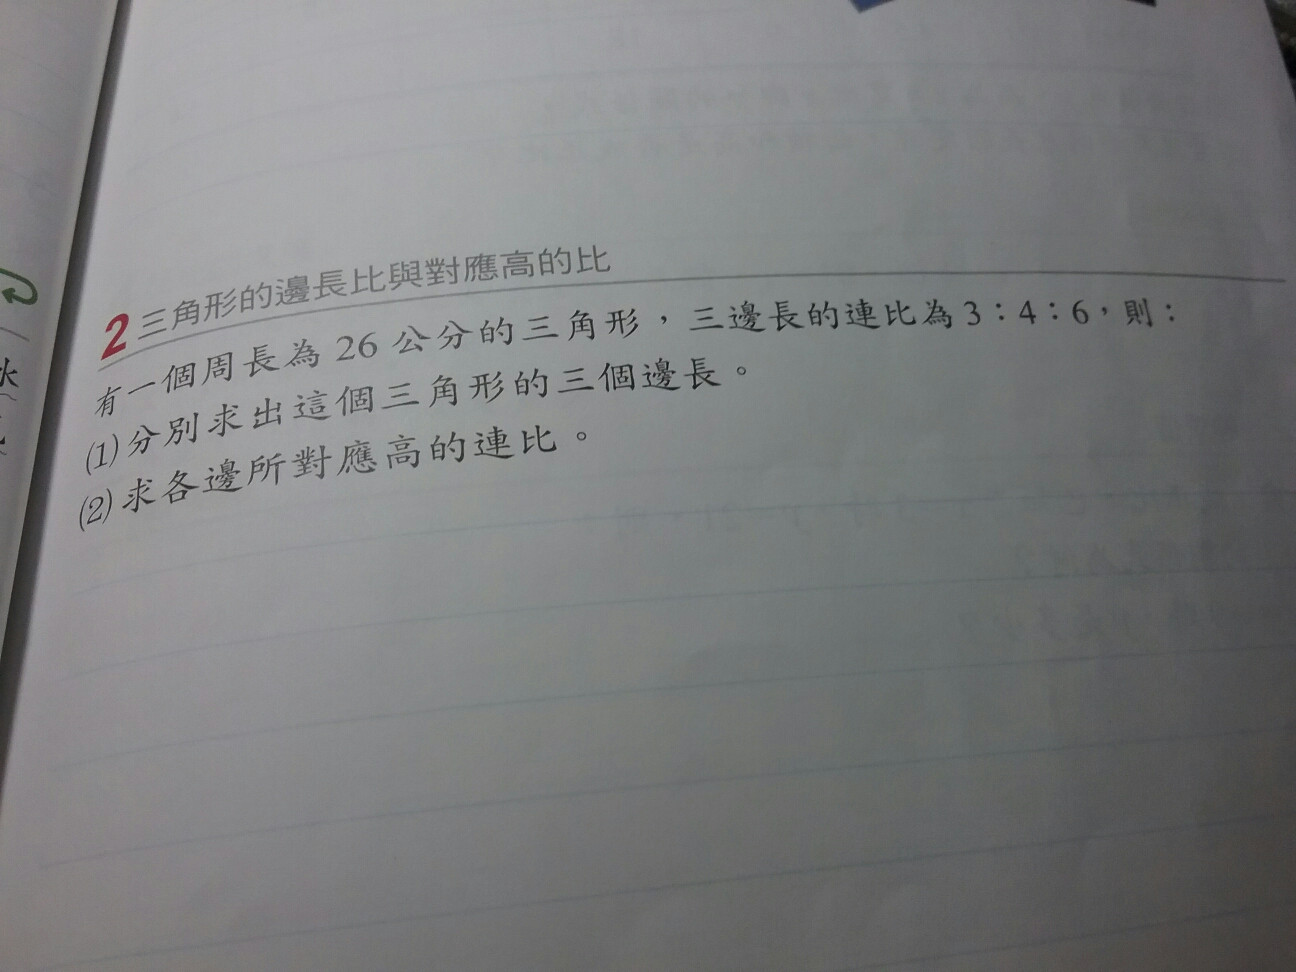 2 三角形的邊長比與對應高的比
有一個周長為 26 公分的三角形，三邊長的連比為 3：4：6，則：
(1) 分別求出這個三角形的三個邊長。
(2) 求各邊所對應高的連比。